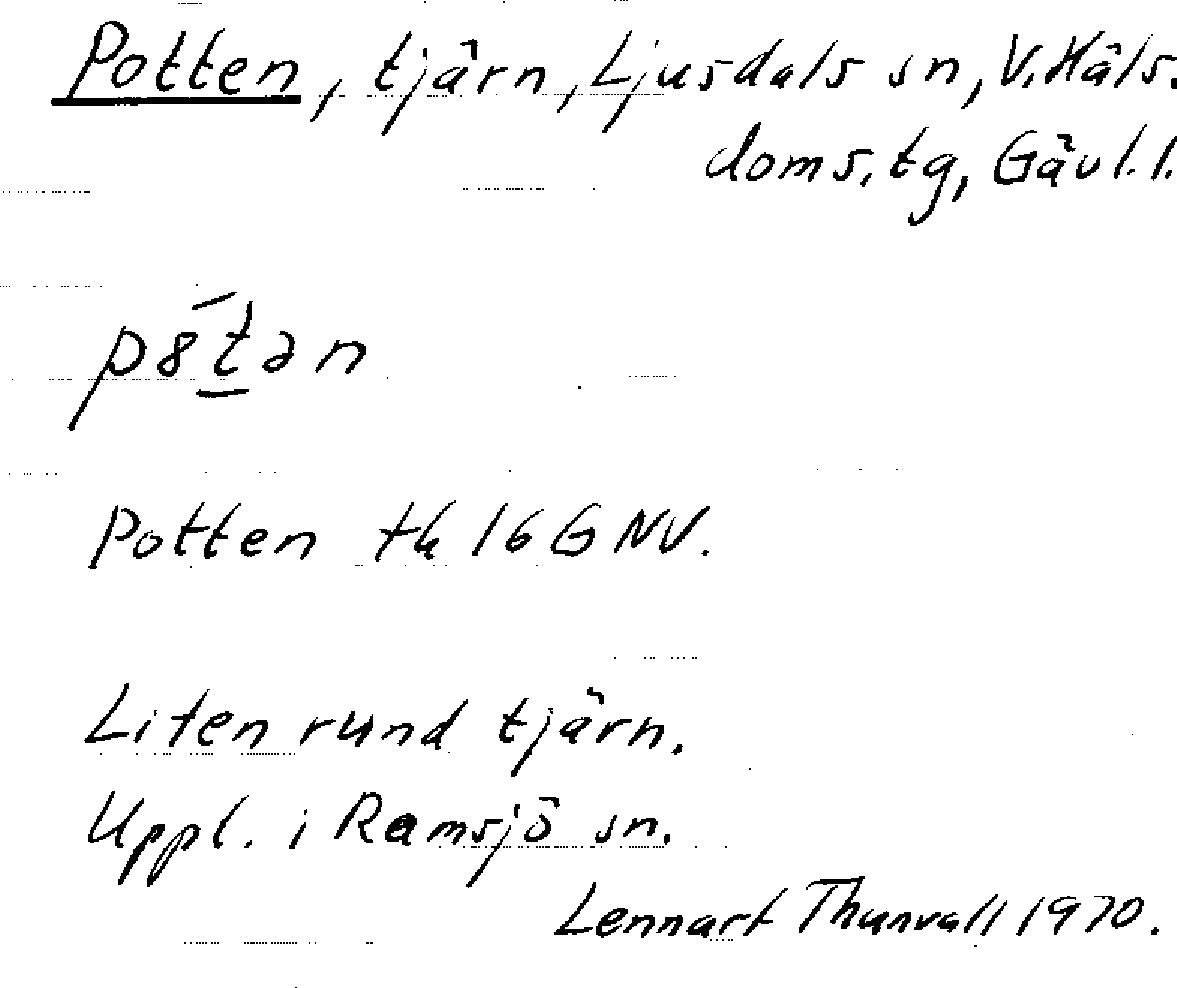 Potten, tjärn, Ljusdals sn, V. Häls.
doms. tg, Gävl. l.
p8́t̲ən
Potten tk 16 G NV.
Liten rund tjärn.
Uppl. i Ramsjö sn.
Lennart Thunvall 1970.